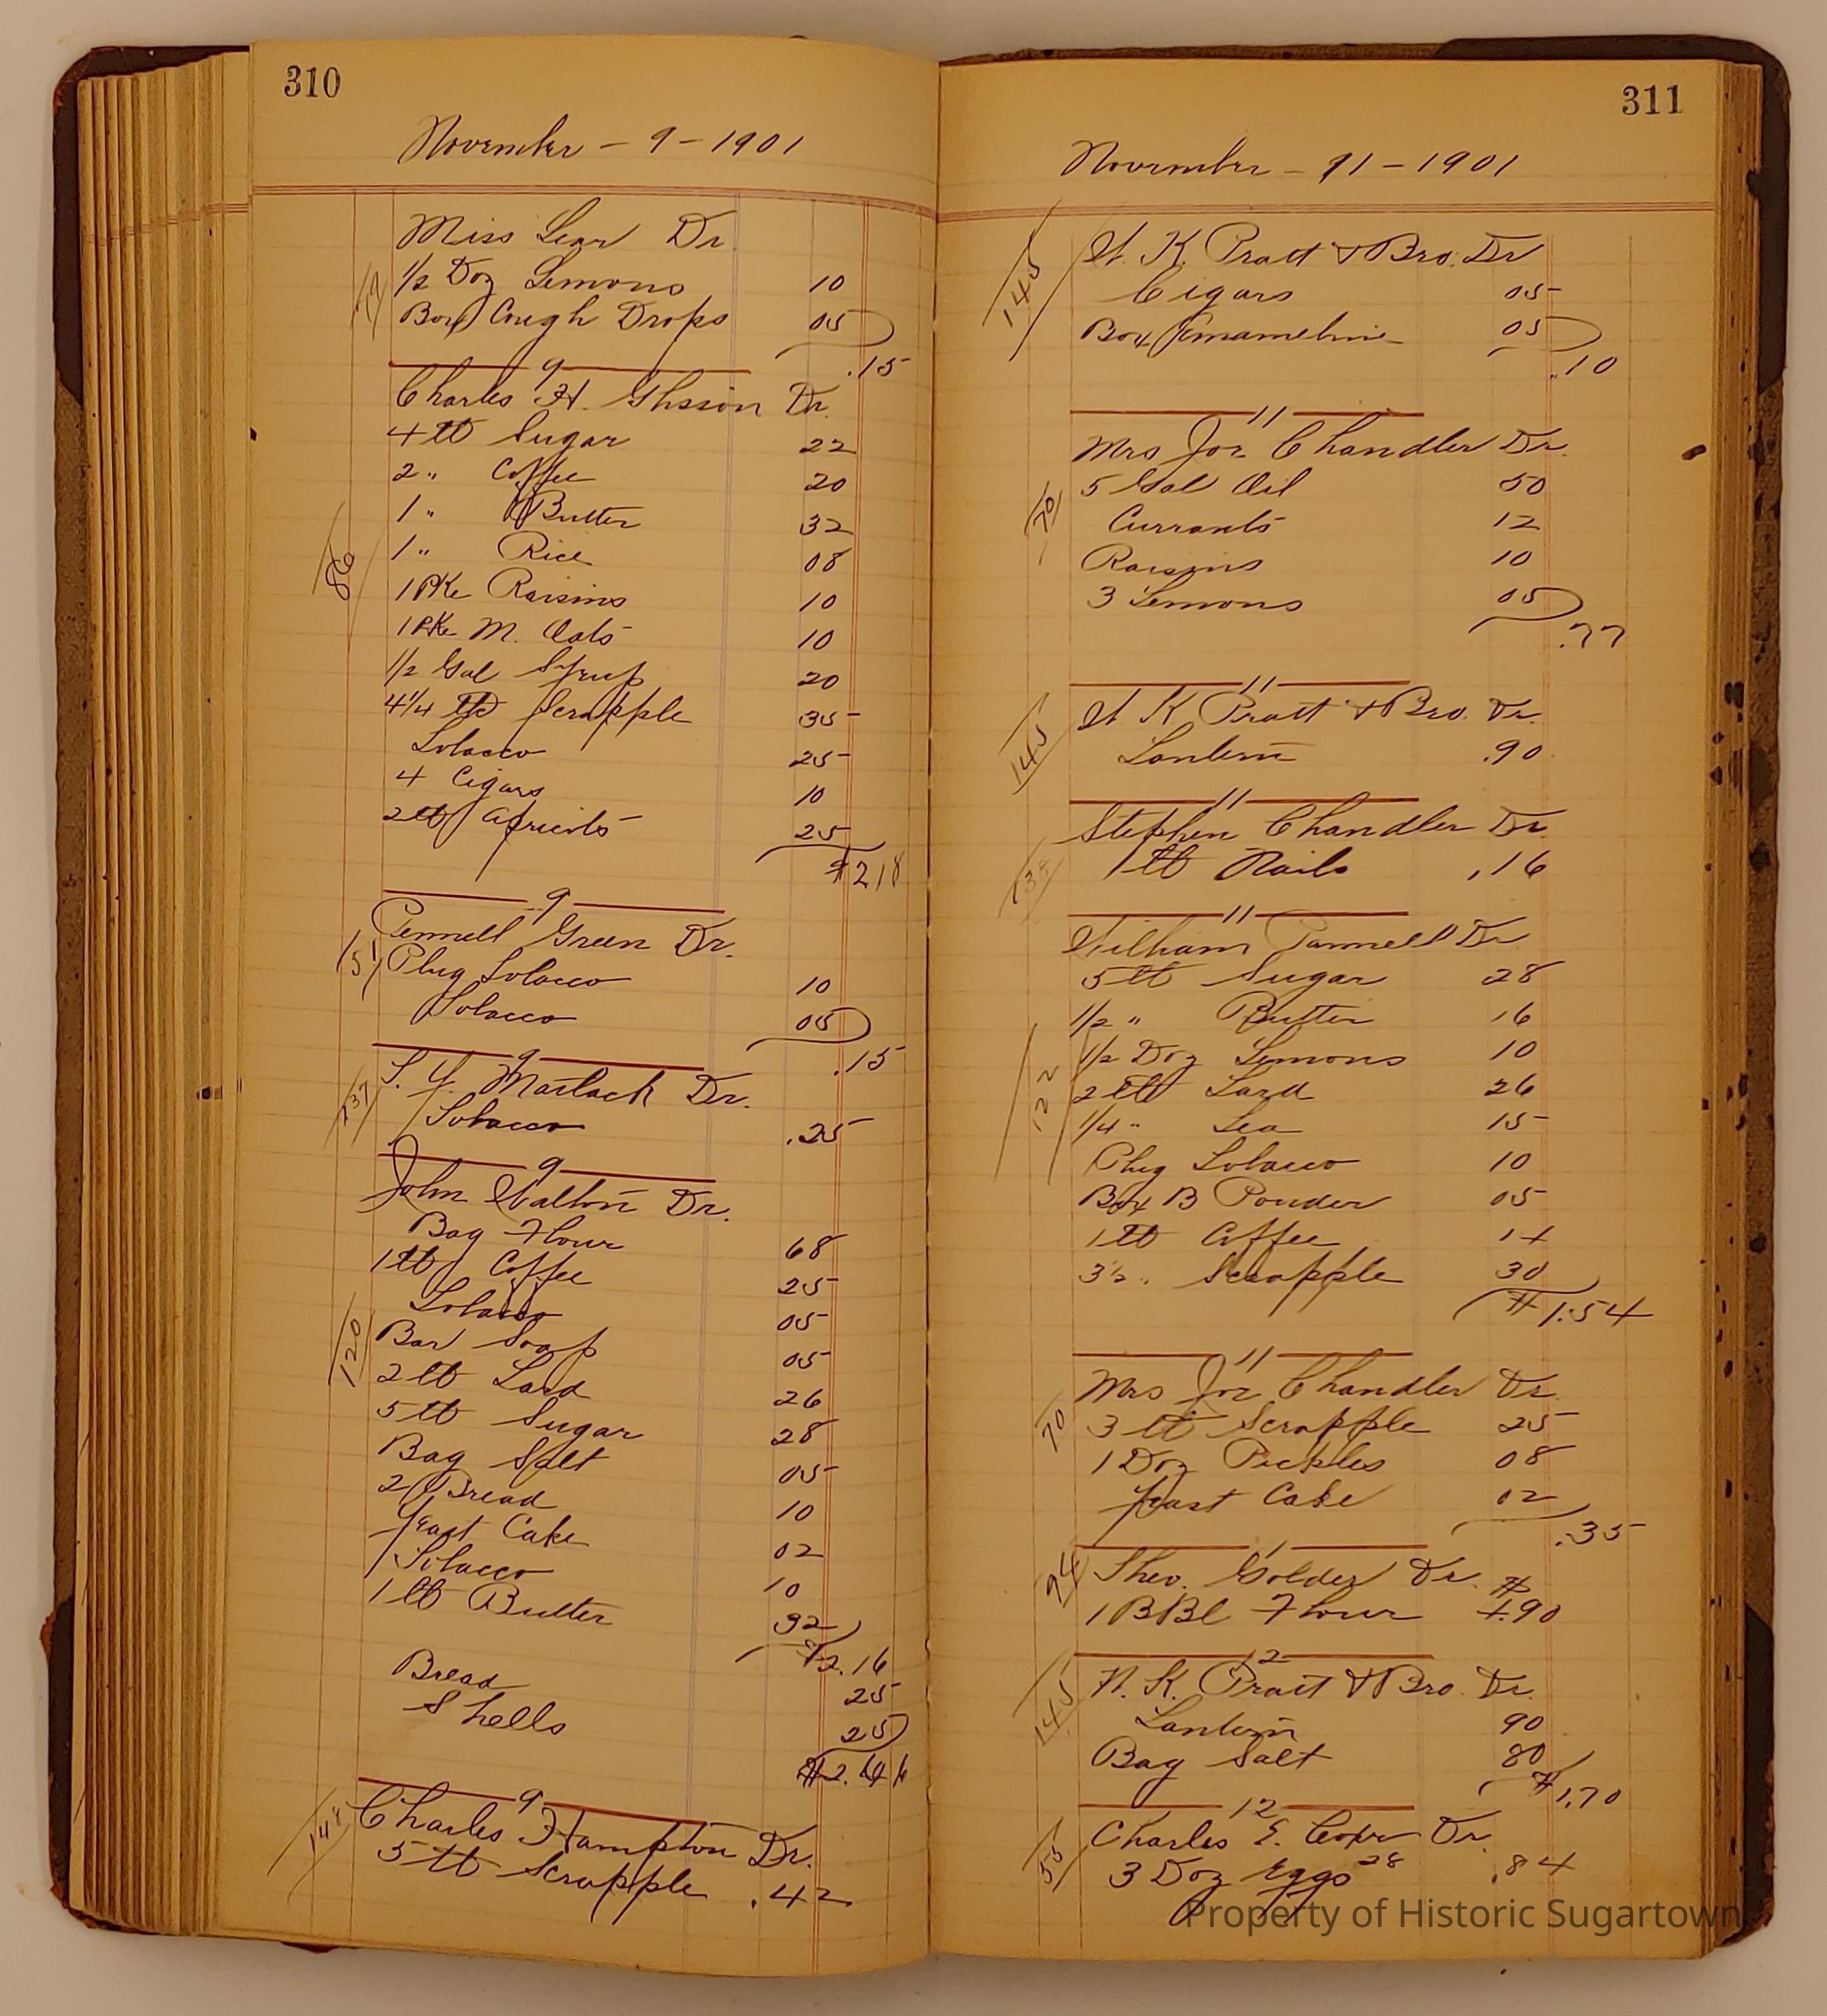 310
November - 9 - 1901
Miss Lear Dr.
12
1/2 Doz Lemons 10
Box Cough Drops 05
.15
9
Charles H. Dr.
4 lb Sugar 22
2 " Coffee 20
1 " Butter 32
86
1 " Rice 08
1 Pke Raisins 10
1 Pke M. Oats 10
1/2 Gal Syrup 20
4 1/4 lb Scrapple 35
Tobacco 25
4 Cigars 10
2 lb Apricots 25
$2 18
9
Pennell Green Dr.
151
Plug Tobacco 10
Tobacco 05
.15
9
137
Marlack Dr.
Tobacco .25
9
John Walton Dr.
Bag Flour 68
1 lb Coffee 25
Tobacco 05
120
Bar Soap 05
2 lb Lard 26
5 lb Sugar 28
Bag Salt 05
2 Bread 10
Yeast Cake 02
Tobacco 10
1 lb Butter 32
$2.16
Bread 25
Shells 25
$2.66
9
148
Charles Hampton Dr.
5 lb Scrapple .42
311
November - 11 - 1901
145
K. Pratt & Bro. Dr
Cigars 05
Box Enameline 05
.10
11
Mrs Jos. Chandler Dr.
70
5 Gal Oil 50
Currants 12
Raisins 10
3 Lemons 05
.77
11
145
K Pratt & Bro. Dr.
Lantern .90
11
Stephen Chandler Dr.
138
1 lb Nails .16
11
William Pannell Dr
5 lb Sugar 28
1/2 " Butter 16
122
1/2 Doz Lemons 10
2 lb Lard 26
1/4 " Tea 15
Plug Tobacco 10
Box B Powder 05
1 lb Coffee 14
3 1/2 " Scrapple 30
$1.54
11
Mrs Jos. Chandler Dr.
70
3 lb Scrapple 25
1 Doz Pickles 08
Yeast Cake 02
.35
11
94
Theo. Golder Dr.
1 BBl Flour $4.90
12
145
K. Pratt & Bro. Dr.
Lantern 90
Bag Salt 80
$1.70
12
55
Charles E. Dr.
3 Doz Eggs 28 .84
Property of Historic Sugartown